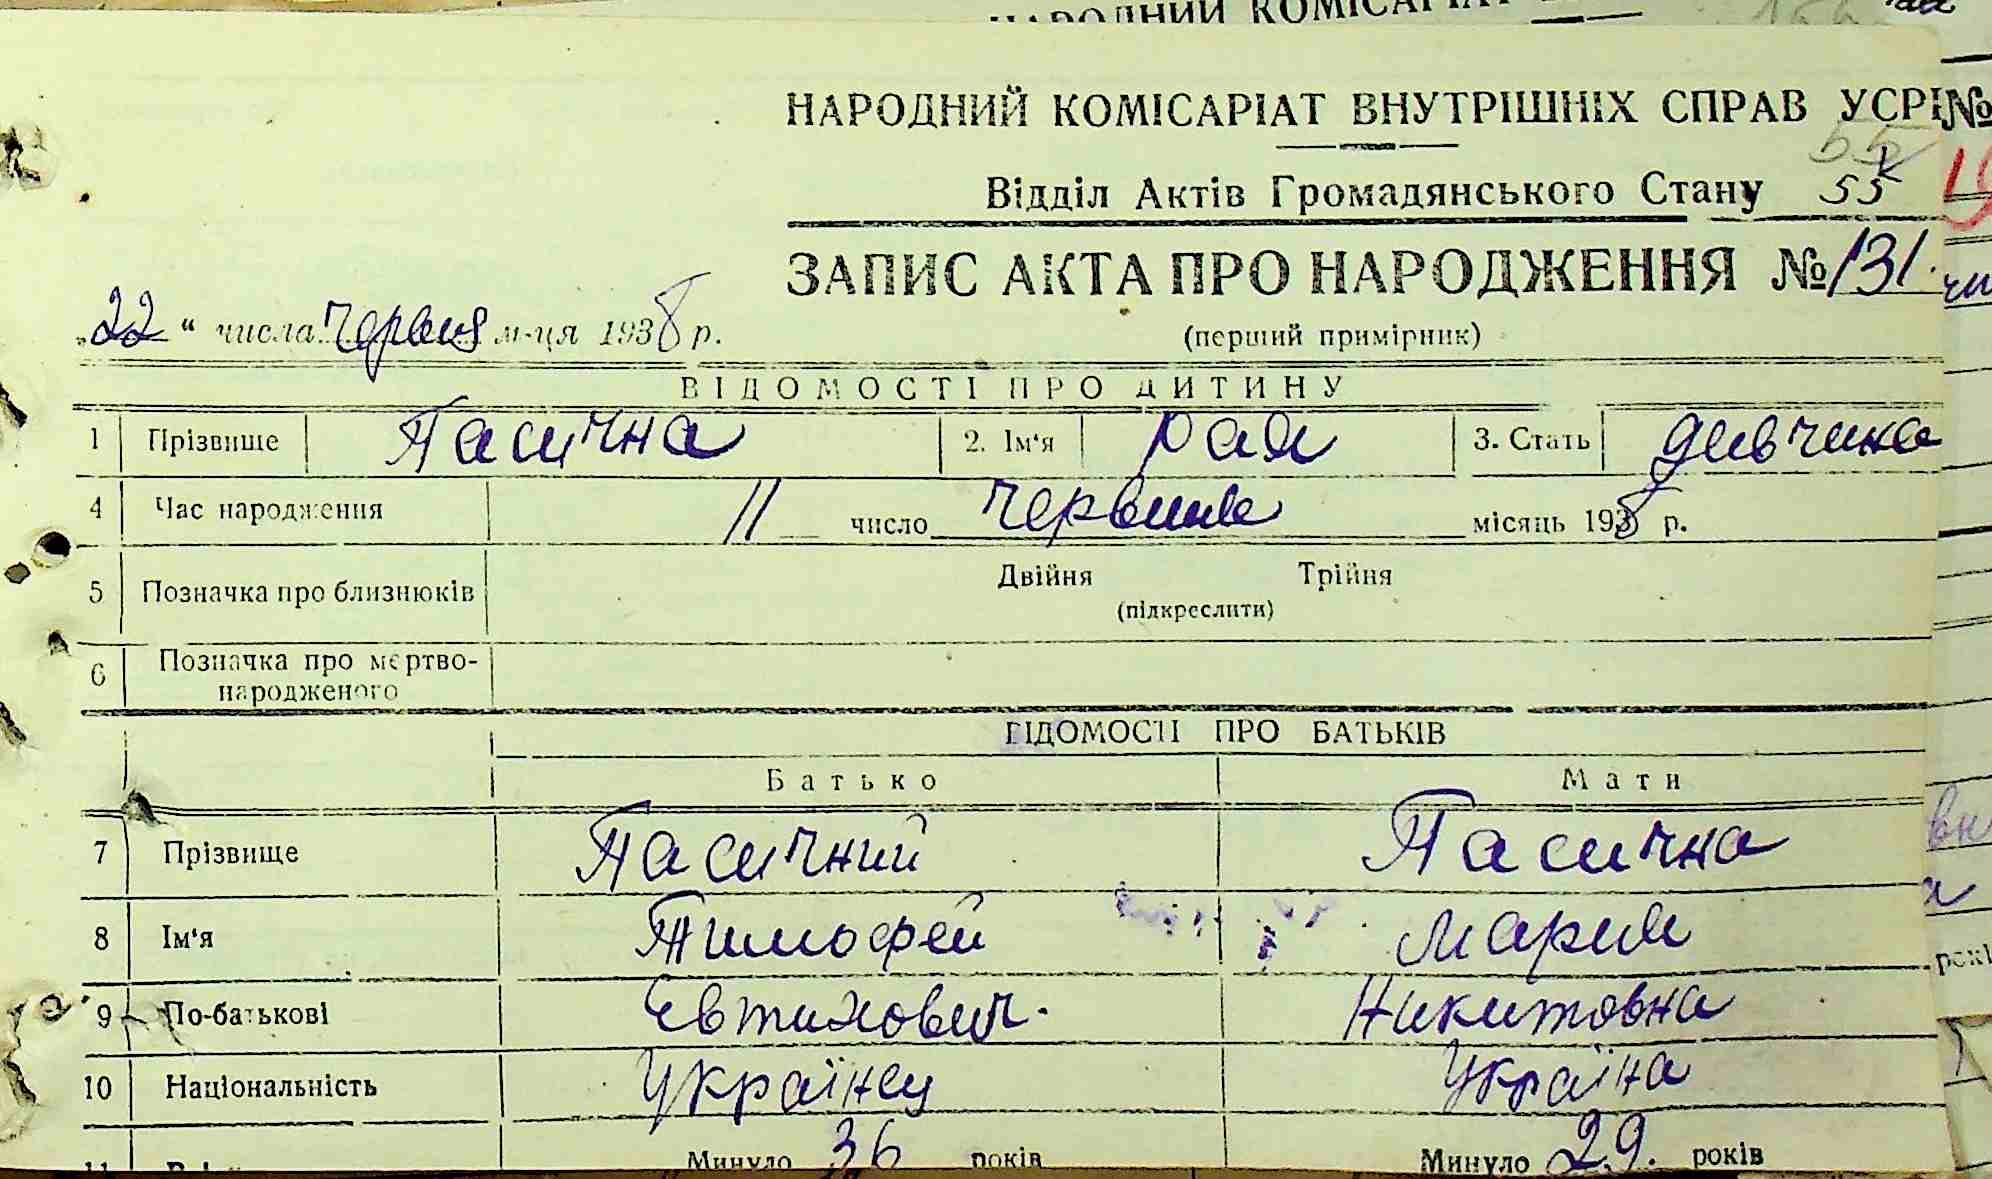 НАРОДНИЙ КОМІСАРІАТ
НАРОДНИЙ КОМІСАРІАТ ВНУТРІШНІХ СПРАВ УСРР №
55
Відділ Актів Громадянського Стану 55
ЗАПИС АКТА ПРО НАРОДЖЕННЯ № 131.
„22“ числа червня м-ця 1938 р.
(перший примірник)
ВІДОМОСТІ ПРО ДИТИНУ
1 Прізвище Пасична 2. Ім'я Рая 3. Стать дивчина
4 Час народження 11 число червня місяць 1938 р.
5 Позначка про близнюків Двійня Трійня
(підкреслити)
6 Позначка про мертво-
народженого
ВІДОМОСТІ ПРО БАТЬКІВ
Батько Мати
7 Прізвище Пасичний Пасична
8 Ім'я Тимофей Мария
9 По-батькові Евтихович. Никитовна
10 Національність Українец Україна
11 Минуло 36 років Минуло 29. років